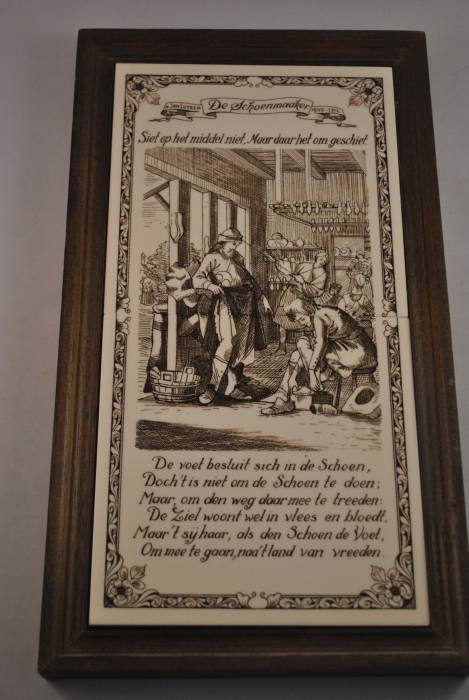 Jan Luyken De Schoenmaaker 1649-1712
Siet op het middel niet, Maar daar het om geschiet.
De voet besluit sich in de Schoen,
Doch 't is niet om de Schoen te doen;
Maar, om den weg daar mee te treeden:
De Ziel woont wel in vlees en bloedt,
Maar 't sy haar, als den Schoen de Voet,
Om mee te gaan, naa 't land van vreeden.